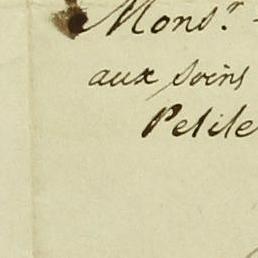 Mons.r
aux soins
Petite